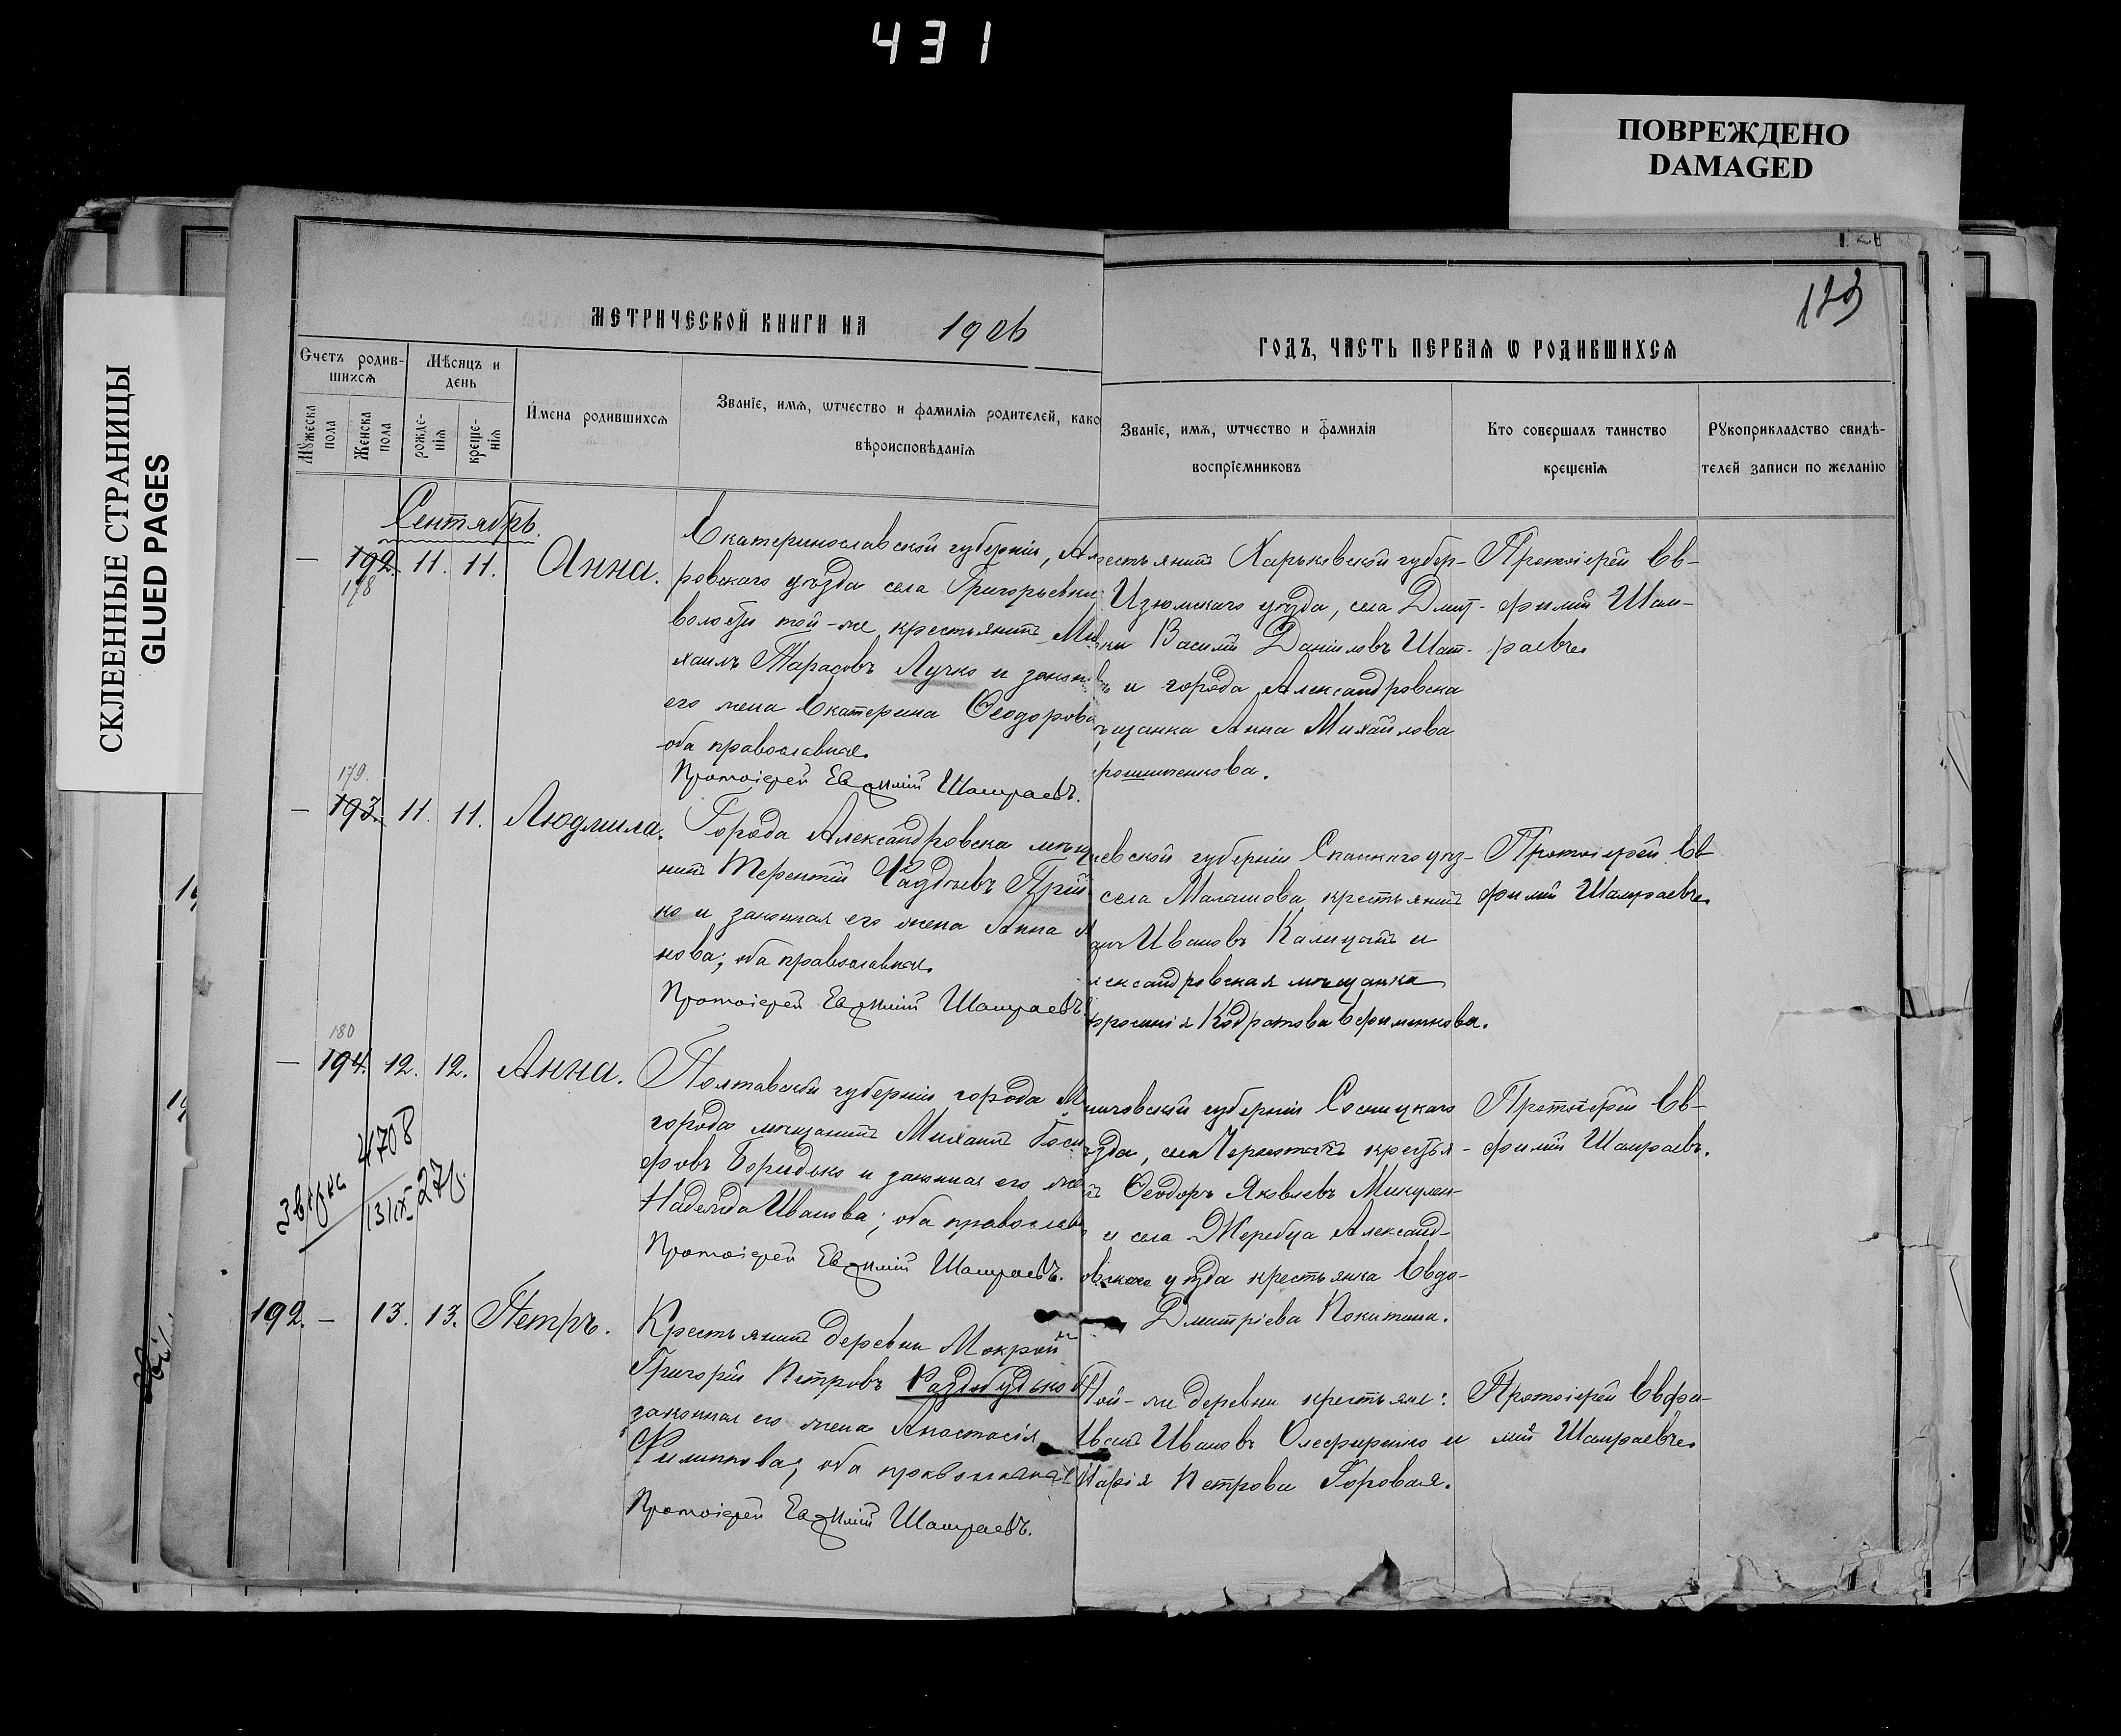 431
ПОВРЕЖДЕНО
DAMAGED
СКЛЕЕННЫЕ СТРАНИЦЫ
GLUED PAGES
123
МЕТРИЧЕСКОЙ КНИГИ НА 1906
ГОДЪ, ЧАСТЬ ПЕРВАѦ Ѡ РОДИВШИХСѦ
Счетъ родив-
шихсѧ
Мѣсяцъ и
день
Мꙋжеска
пола
Женска
пола
рожде-
нїѧ
креще-
нїѧ
Имена родившихсѧ
Званїе, имѧ, ѡтчество и фамилїѧ родителей, како
вѣроисповѣданїѧ
Званїе, имѧ, ѡтчество и фамилїѧ
воспрїемниковъ
Кто совершалъ таинство
крещенїѧ
Рꙋкоприкладство свидѣ-
телей записи по желанїю
Сентябрь.
— 192. 11. 11. Анна.
178
Екатеринославской губерніи, Ал
ровскаго уѣзда села Григорьевки
волости той-же крестьянинъ Ми
хаилъ Тарасовъ Лучко и законн
его жена Екатерина Ѳеодорова
оба православные.
Протоіерей Евѳимій Шамраевъ.
естьянинъ Харьковской губер-
Изюмскаго уѣзда, села Дмит-
вки Василій Даніиловъ Шат-
и города Александровска
щанка Анна Михайлова
Протоіерей Ев-
фимій Шам-
раевъ.
179.
— 193. 11. 11. Людмила.
Города Александровска мѣщ
нинъ Терентій Фаддѣевъ Прій
ко и законная его жена Анна
нова; оба православные.
Протоіерей Евѳимій Шамраевъ.
евской губерніи Спасскаго уѣз-
села Малашова крестьянинъ
Ивановъ Калицынъ и
лександровская мѣщанка
фросинія Кодратова Ефименкова.
Протоіерей Ев
фимій Шамраевъ.
180
— 194. 12. 12. Анна.
Полтавской губерніи города М
города мѣщанинъ Михаилъ Іоси
фовъ Боридько и законная его же
Надежда Иванова; оба православ
Протоіерей Евѳимій Шамраевъ.
ниговской губерніи Сосницкаго
ѣзда, села крестья-
Ѳеодоръ Яковлевъ Микулен-
и села Жеребца Александ-
овскаго уѣзда крестьянка Евдо-
Дмитріева Никитина.
Протоіерей Ев-
фимій Шамраевъ.
4708
13/IX 27
192. — 13. 13. Петръ.
Крестьянинъ деревни Мокрой
Григорій Петровъ Раздобудько и
законная его жена Анастасія
Филиппова; оба православные
Протоіерей Евѳимій Шамраевъ.
Той-же деревни крестьяне:
Иванъ Ивановъ Олефиренко и
Марія Петрова Горовая.
Протоіерей Евфи-
мій Шамраевъ.